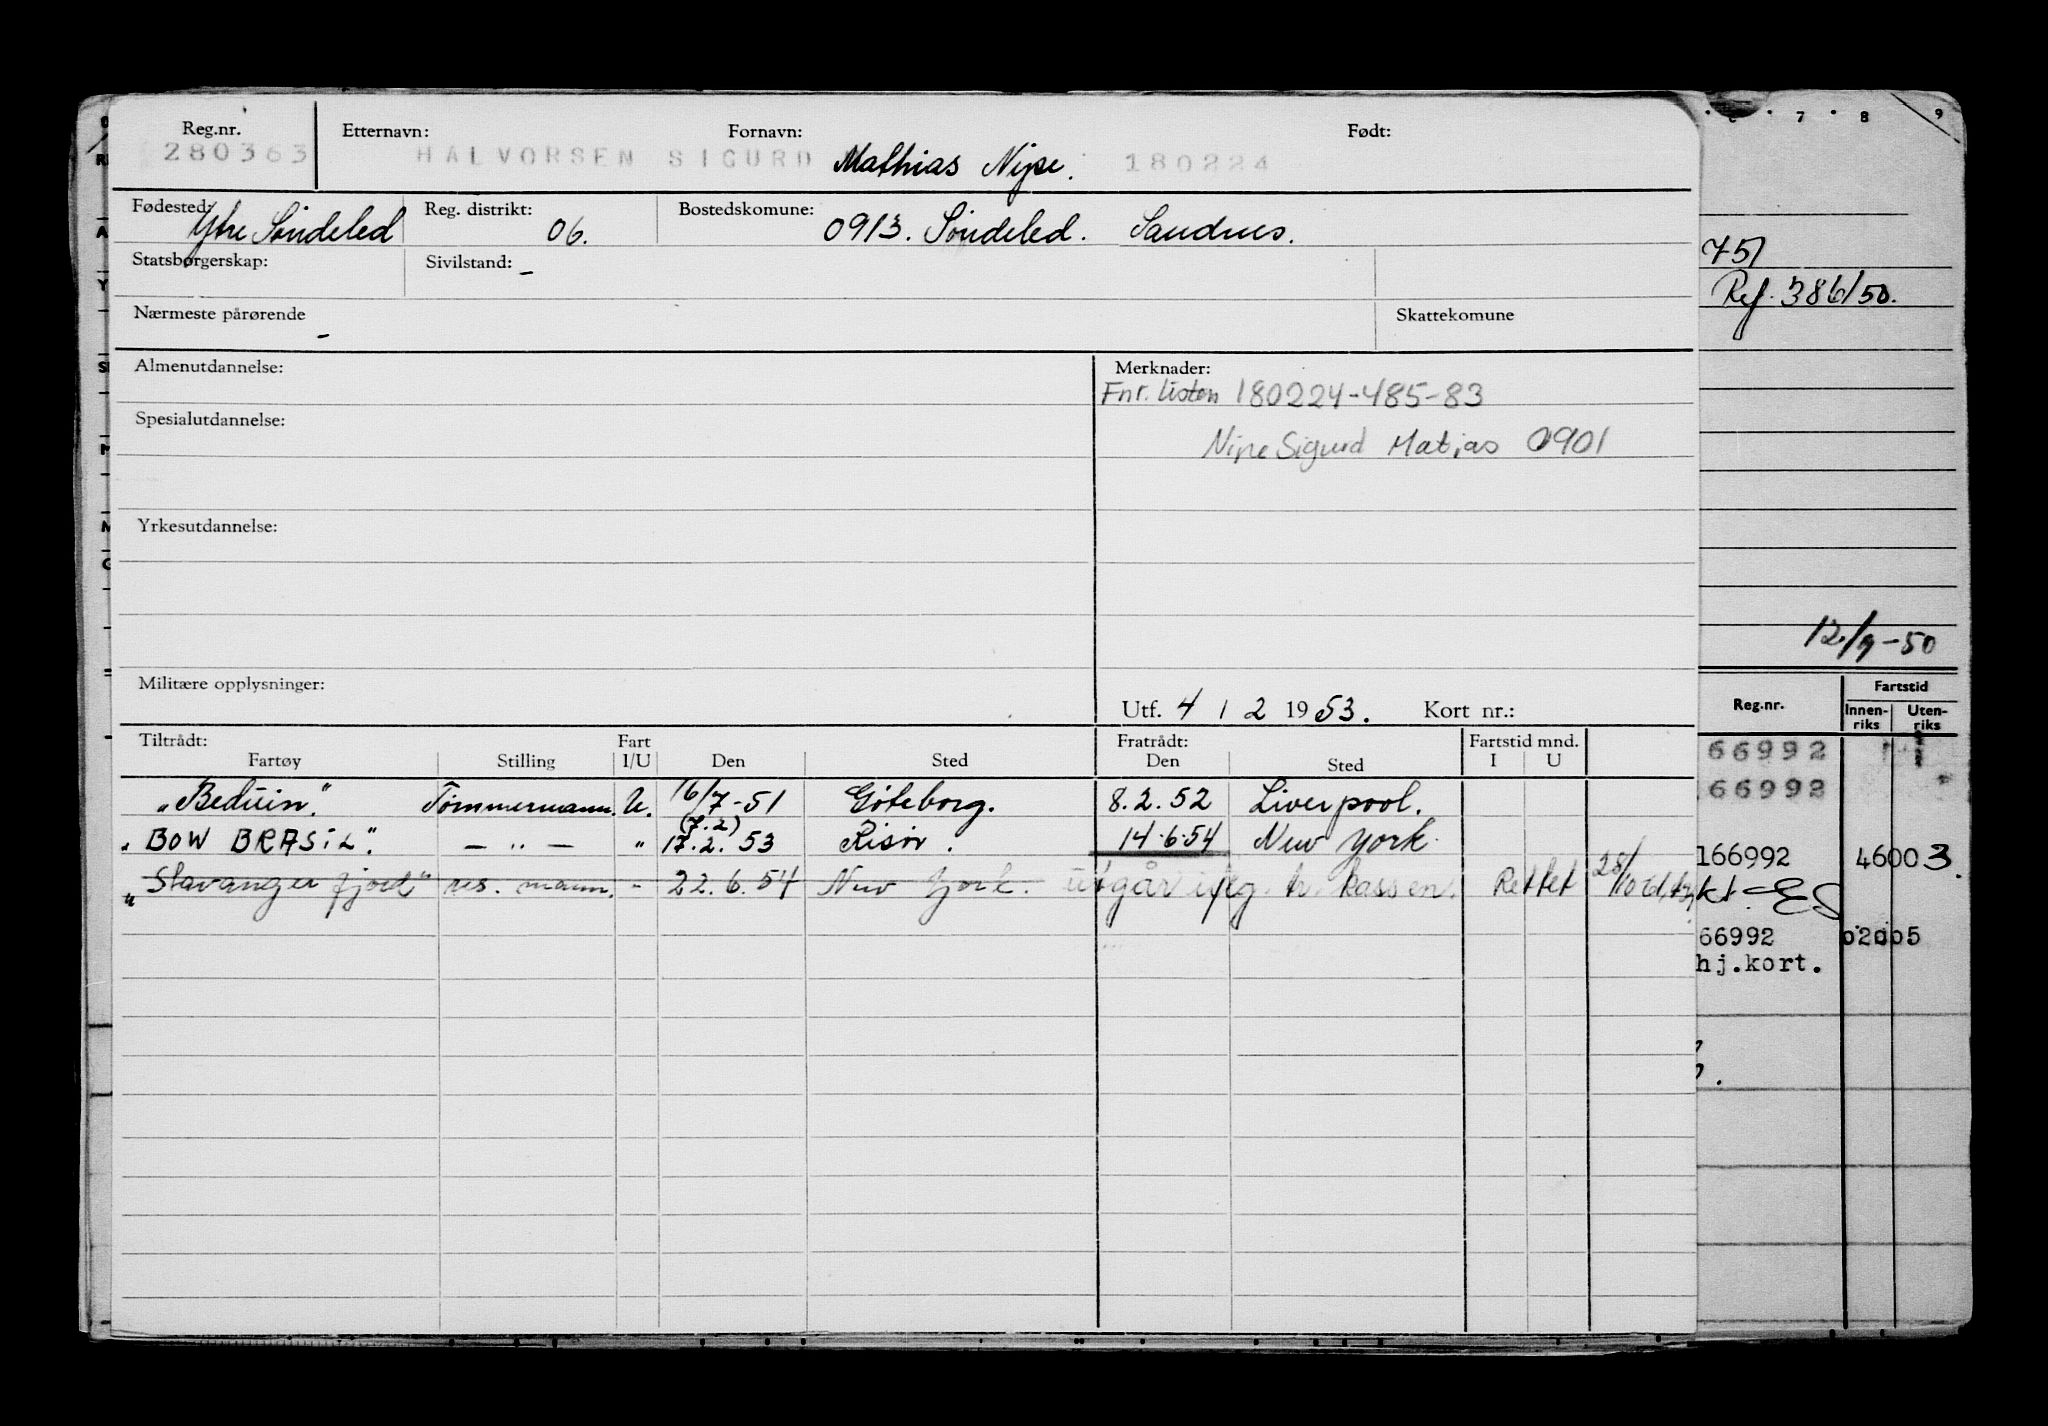 Reg.nr. Etternavn: Fornavn: Født:
280363 HALVORSEN SIGURD Mathias Nipe. 180224
Fødested: Ytre Søndeled Reg. distrikt: 06. Bostedskomune: 0913. Søndeled. Sandnes.
Statsborgerskap: Sivilstand: –
Nærmeste pårørende – Skattekomune
Almenutdannelse: Merknader:
Fnr. listen 180224-485-83
Spesialutdannelse:
Nipe Sigurd Matias 0901
Yrkesutdannelse:
Militære opplysninger:
Utf. 4 / 2 19 53. Kort nr.:
Tiltrådt: Fart Fratrådt: Fartstid mnd.
Fartøy Stilling I/U Den Sted Den Sted I U
"Beduin". Tømmermann. U. 16/7-51 Göteborg. 8.2.52 Liverpool.
(7.2)
"BOW BRASIL". – " – " 17.2.53 Risør. 14.6.54 New York.
"Stavangerfjord" res. mann. - 22.6.54 New York. utgår iflg. tr. kassen. Rettet 28/10
7 8 9
751
Ref. 386/50.
12/9-50
Reg.nr. Fartstid
Innen-riks Uten-riks
66992
66992
166992 46003.
kt.
66992 02005
hj.kort.